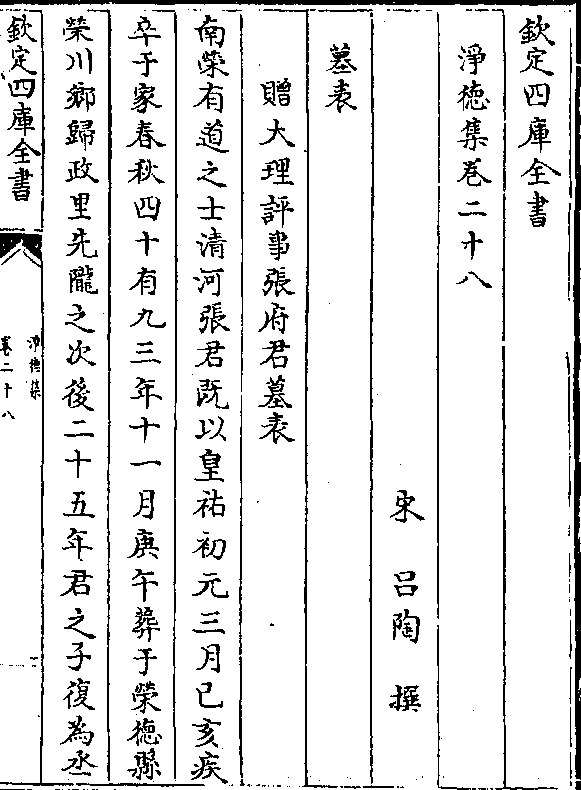 欽定四庫全書
淨德集卷二十八
宋 呂陶 撰
墓表
贈大理評事張府君墓表
南榮有道之士清河張君既以皇祐初元三月己亥疾
卒于家春秋四十有九三年十一月庚午葬于榮德縣
榮川鄉歸政里先隴之次後二十五年君之子復為丞
欽定四庫全書
淨德集
卷二十八